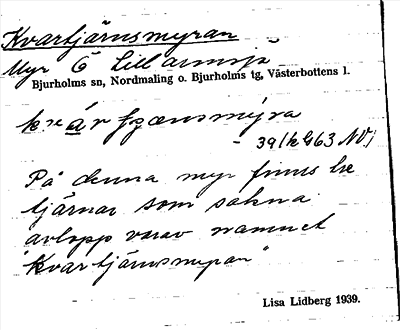 Kvartjärnsmyran
Myr Ö Lillarmsjö
Bjurholms sn, Nordmaling o. Bjurholms tg, Västerbottens l.
På denna myr finns tre
tjärnar som sakna
avlopp varav namnet
"Kvartjärnsmyran"
Lisa Lidberg 1939.